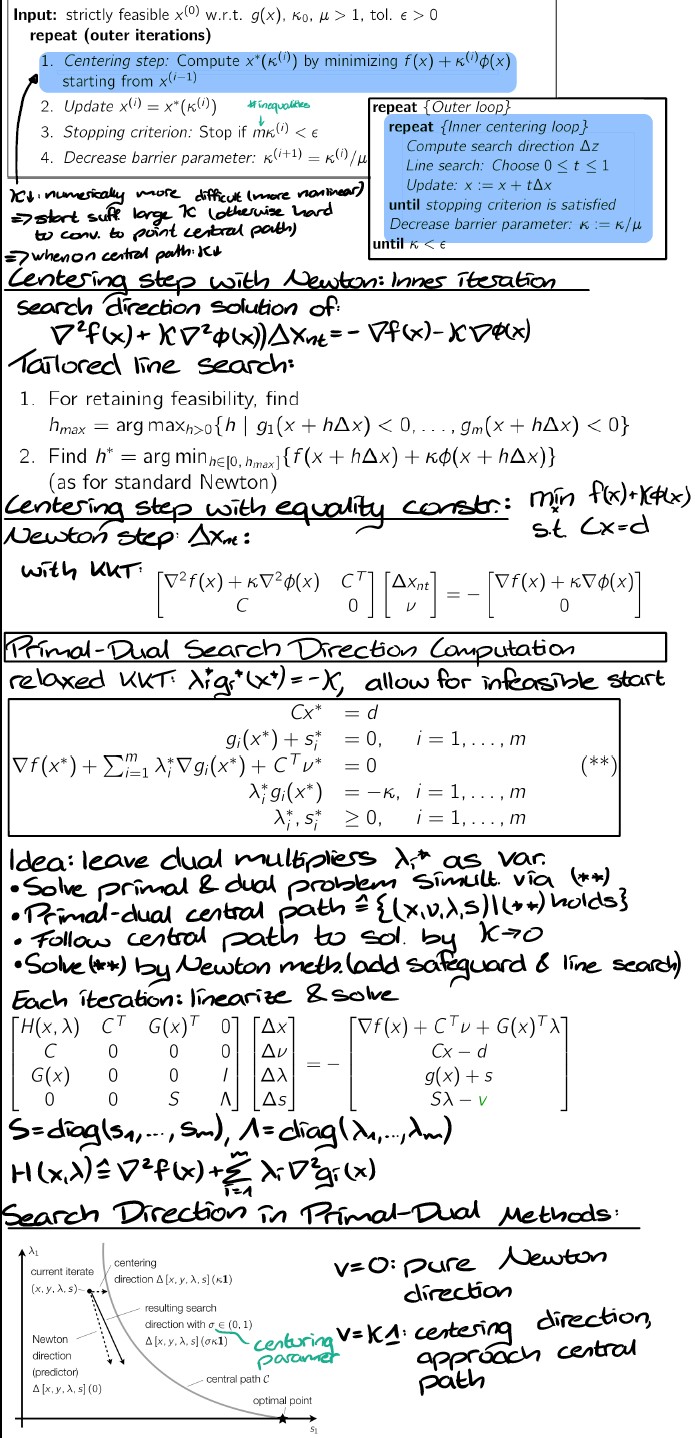 Input: strictly feasible x^(0) w.r.t. g(x), κ_0, μ > 1, tol. ϵ > 0
repeat (outer iterations)
1. Centering step: Compute x*(κ^(i)) by minimizing f(x) + κ^(i)ϕ(x)
starting from x^(i−1)
2. Update x^(i) = x*(κ^(i))
#inequalities
3. Stopping criterion: Stop if mκ^(i) < ϵ
4. Decrease barrier parameter: κ^(i+1) = κ^(i)/μ
repeat {Outer loop}
repeat {Inner centering loop}
Compute search direction Δz
Line search: Choose 0 ≤ t ≤ 1
Update: x := x + tΔx
until stopping criterion is satisfied
Decrease barrier parameter: κ := κ/μ
until κ < ϵ
κ↓: numerically more difficult (more nonlinear)
=> start suff. large κ (otherwise hard
to conv. to point central path)
=> when on central path: κ↓
Centering step with Newton: Inner iteration
search direction solution of:
∇²f(x) + κ∇²ϕ(x))Δx_nt = − ∇f(x) − κ∇ϕ(x)
Tailored line search:
1. For retaining feasibility, find
h_max = arg max_{h>0}{h | g_1(x + hΔx) < 0, . . . , g_m(x + hΔx) < 0}
2. Find h* = arg min_{h∈[0, h_max]}{f(x + hΔx) + κϕ(x + hΔx)}
(as for standard Newton)
Centering step with equality constr.: min_x f(x)+κϕ(x)
s.t. Cx=d
Newton step: Δx_nt:
with KKT:
[∇²f(x) + κ∇²ϕ(x) C^T] [Δx_nt] = − [∇f(x) + κ∇ϕ(x)]
[C 0] [ν] [0]
Primal-Dual Search Direction Computation
relaxed KKT: λ_i* g_i*(x*) = −κ, allow for infeasible start
Cx* = d
g_i(x*) + s_i* = 0, i = 1, . . . , m
∇f(x*) + ∑_{i=1}^m λ_i*∇g_i(x*) + C^T ν* = 0 (**)
λ_i* g_i(x*) = −κ, i = 1, . . . , m
λ_i*, s_i* ≥ 0, i = 1, . . . , m
Idea: leave dual multipliers λ_i* as var.
• Solve primal & dual problem simult. via (**)
• Primal-dual central path ≙ {(x,ν,λ,s)|(**) holds}
• Follow central path to sol. by κ→0
• Solve (**) by Newton meth. (add safeguard & line search)
Each iteration: linearize & solve
[H(x, λ) C^T G(x)^T 0] [Δx] = − [∇f(x) + C^T ν + G(x)^T λ]
[C 0 0 0] [Δν] [Cx − d]
[G(x) 0 0 I] [Δλ] [g(x) + s]
[0 0 S Λ] [Δs] [Sλ − v]
S=diag(s_1,...,s_m), Λ=diag(λ_1,...,λ_m)
H(x,λ) ≙ ∇²f(x) + ∑_{i=1}^m λ_i ∇²g_i(x)
Search Direction in Primal-Dual Methods:
λ_1
current iterate
(x, y, λ, s)
centering
direction Δ [x, y, λ, s] (κ1)
resulting search
direction with σ ∈ (0, 1)
Δ [x, y, λ, s] (σκ1)
centuring
paramer
Newton
direction
(predictor)
Δ [x, y, λ, s] (0)
central path C
optimal point
s_1
v=0: pure Newton
direction
v=κ1: centering direction,
approach central
path